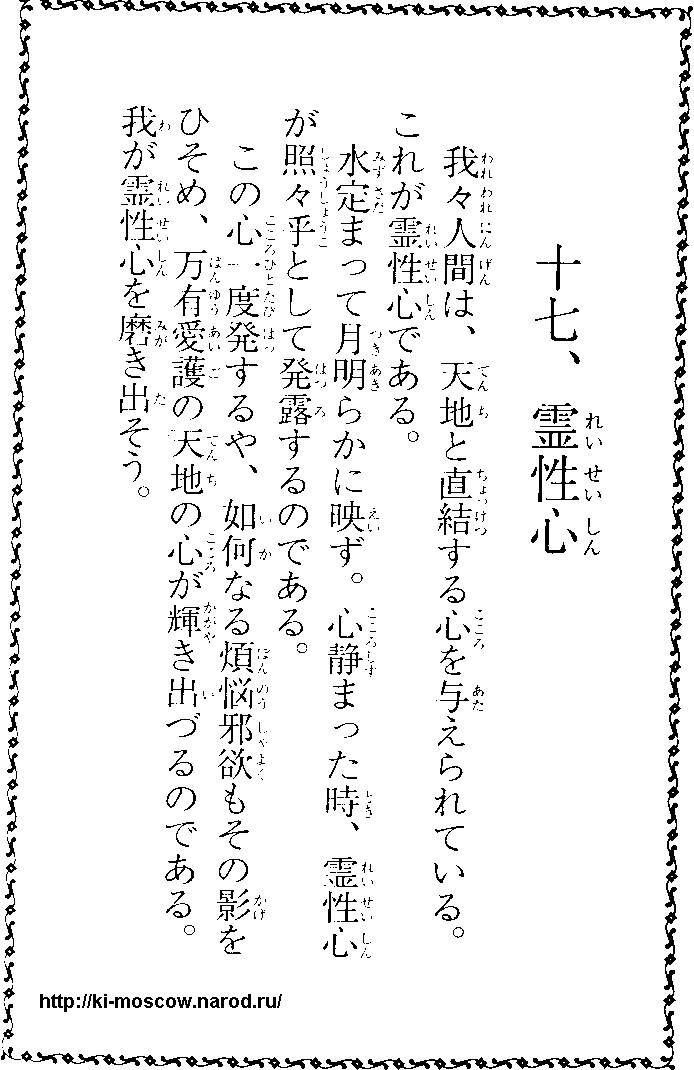 十七、霊性心
我々人間は、天地と直結する心を与えられている。
これが霊性心である。
水定まって月明らかに映ず。心静まった時、霊性心
が照々乎として発露するのである。
この心一度発するや、如何なる煩悩邪欲もその影を
ひそめ、万有愛護の天地の心が輝き出づるのである。
我が霊性心を磨き出そう。
http://ki-moscow.narod.ru/